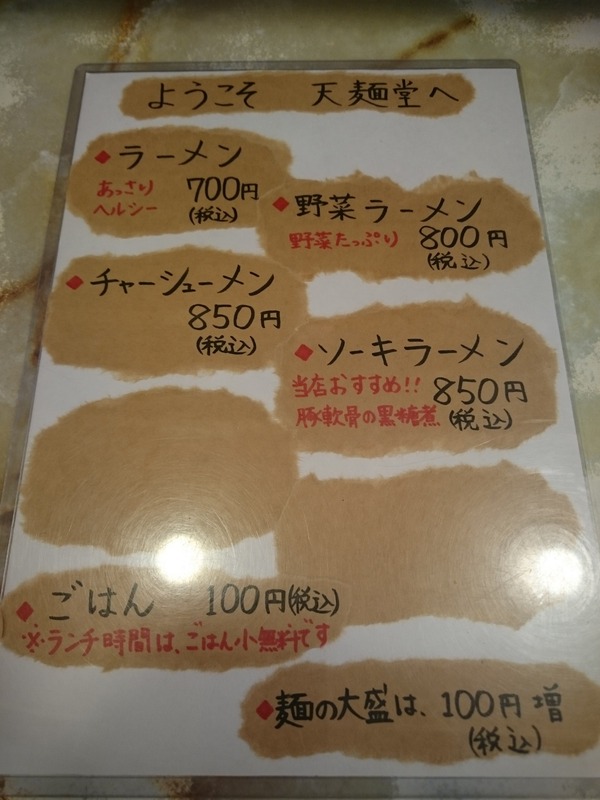 ようこそ 天麺堂へ
◆ラーメン
あっさり
ヘルシー
700円
(税込)
◆野菜ラーメン
野菜たっぷり 800円
(税込)
◆チャーシューメン
850円
(税込)
◆ソーキラーメン
当店おすすめ!! 850円
豚軟骨の黒糖煮 (税込)
◆ごはん 100円(税込)
※ランチ時間は、ごはん小無料です
◆麺の大盛は、100円増
(税込)